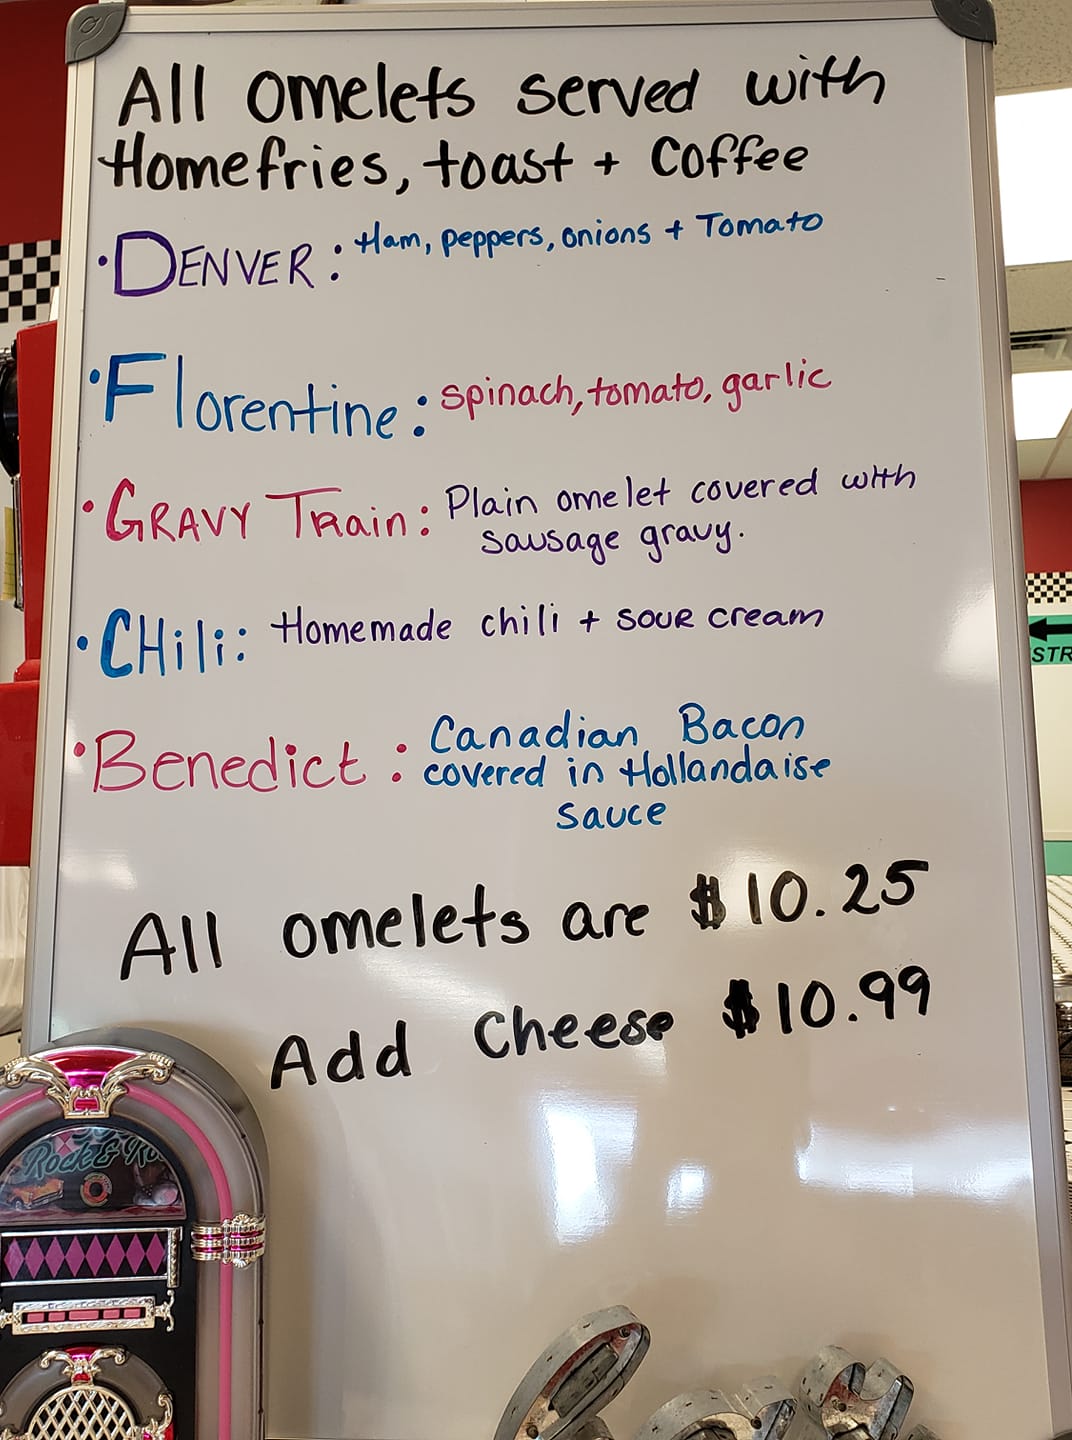 All omelets served with
Homefries, toast + Coffee
• DENVER: Ham, peppers, onions + Tomato
• Florentine: spinach, tomato, garlic
• GRAVY TRain: Plain omelet covered with
sausage gravy.
• CHili: Homemade chili + SOUR cream
• Benedict: Canadian Bacon
covered in Hollandaise
sauce
All omelets are $10.25
Add Cheese $10.99
STR
Rock &